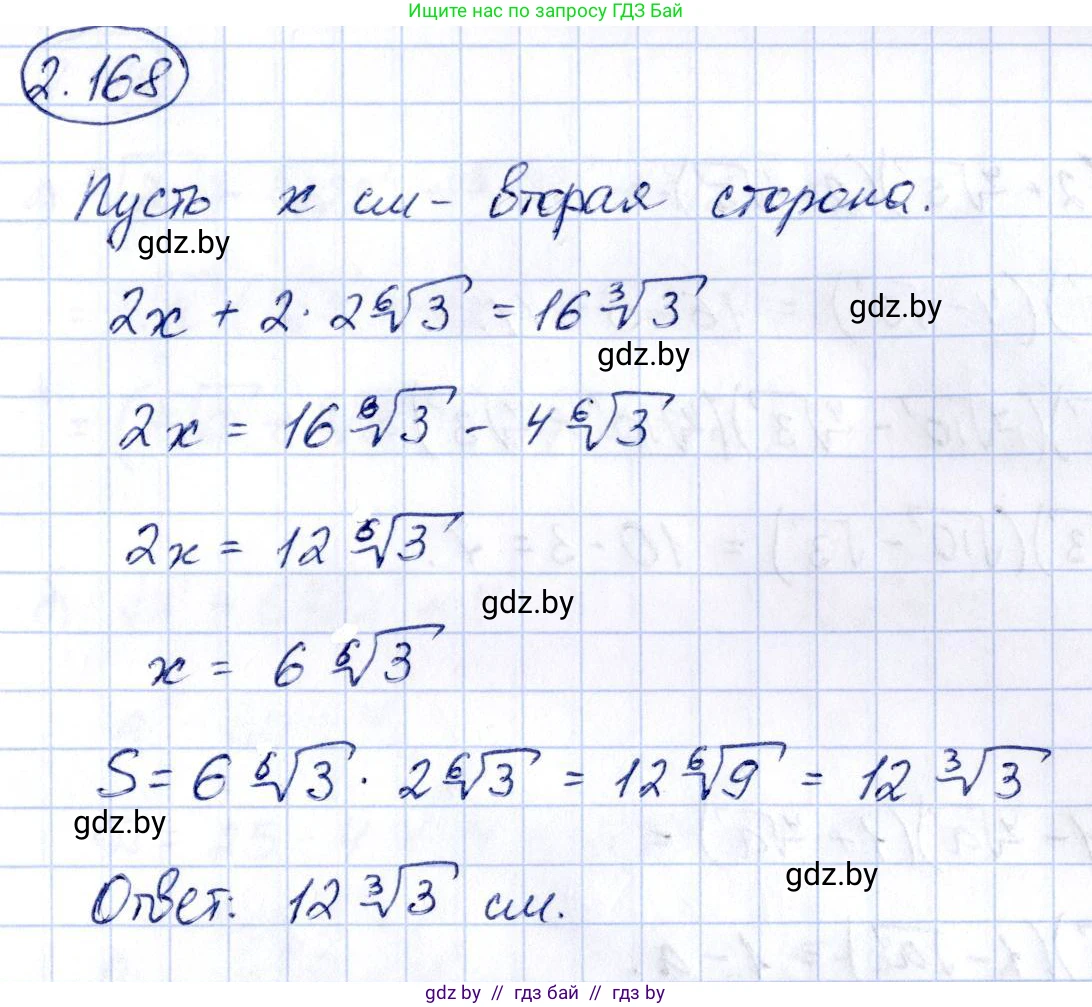 Ищите нас по запросу ГДЗ Бай
2.168
Пусть x см - вторая сторона.
gdz.by
2x + 2 · 2⁶√3 = 16³√3
gdz.by
gdz.by
2x = 16⁶√3 - 4⁶√3
2x = 12⁶√3
gdz.by
x = 6⁶√3
S = 6⁶√3 · 2⁶√3 = 12⁶√9 = 12³√3
gdz.by
gdz.by
Ответ: 12³√3 см.
gdz.by // гдз бай // гдз by